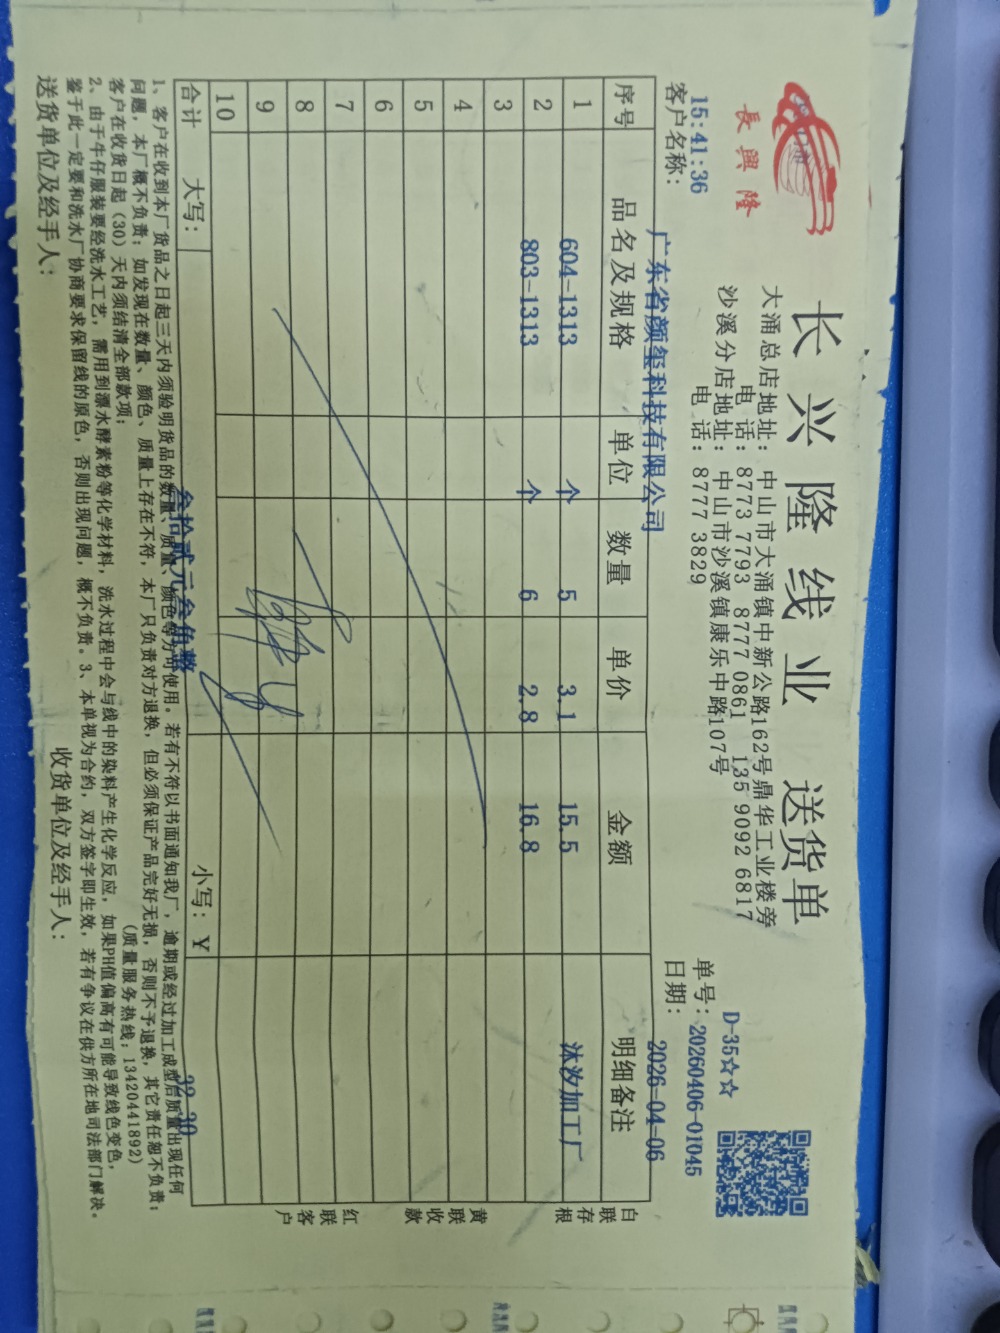 長興隆
长兴隆线业 送货单
大涌总店地址: 中山市大涌镇中新公路162号鼎华工业楼旁
电 话: 8773 7793 8777 0861 135 9092 6817
沙溪分店地址: 中山市沙溪镇康乐中路107号
电 话: 8777 3829
D-35☆☆
15:41:36
单号: 20260406-01045
客户名称: 广东省颜玺科技有限公司
日期: 2026-04-06
序号 品名及规格 单位 数量 单价 金额 明细备注
1 604-1313 个 5 3.1 15.5 沐汐加工厂
2 803-1313 个 6 2.8 16.8
3
4
5
6
7
8
9
10
合计 大写: 叁拾贰元叁角整 小写: ¥ 32.30
白联存根
黄联收款
红联客户
1、客户在收到本厂货品之日起三天内须验明货品的数量、质量、颜色等方可使用。若有不符以书面通知我厂，逾期或经过加工成型后质量出现任何
问题，本厂概不负责；如发现在数量、颜色、质量上存在不符，本厂只负责对方退换，但必须保证产品完好无损，否则不予退换，其它责任恕不负责；
客户在收货日起（30）天内须结清全部款项； (质量服务热线: 13420441892)
2、由于牛仔服装要经洗水工艺，需用到漂水酵素粉等化学材料，洗水过程中会与线中的染料产生化学反应，如果PH值偏高有可能导致线色变色，
鉴于此一定要和洗水厂协商要求保留线的原色，否则出现问题，概不负责。3、本单视为合约，双方签字即生效，若有争议在供方所在地司法部门解决。
送货单位及经手人: 收货单位及经手人: